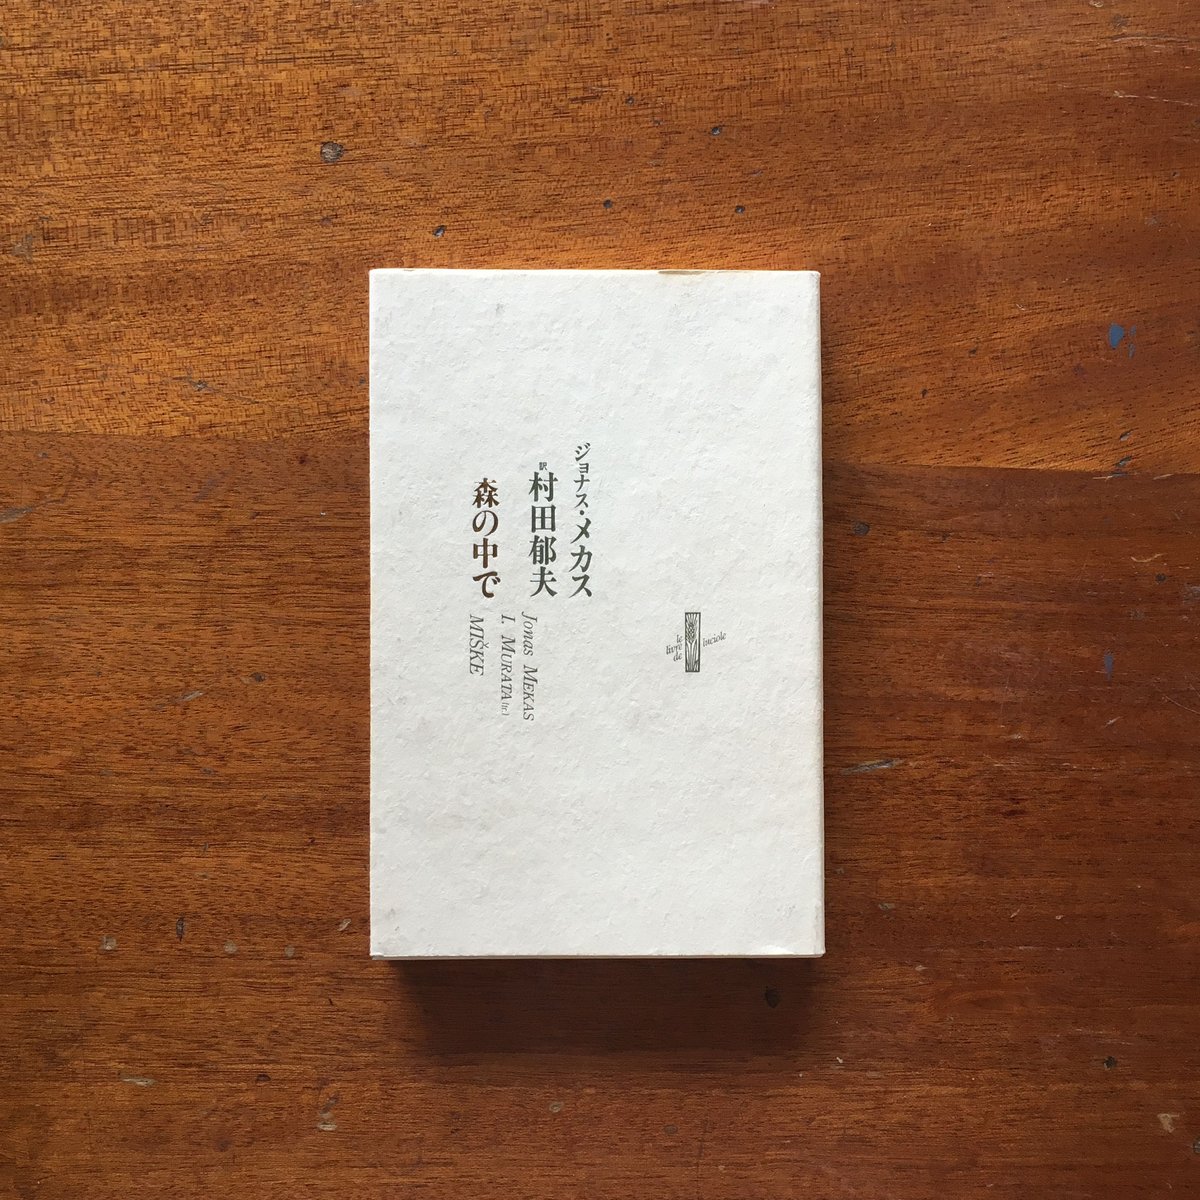 ジョナス・メカス
訳 村田郁夫
森の中で
Jonas MEKAS
I. MURATA (tr.)
MIŠKE
le
livre
de
luciole